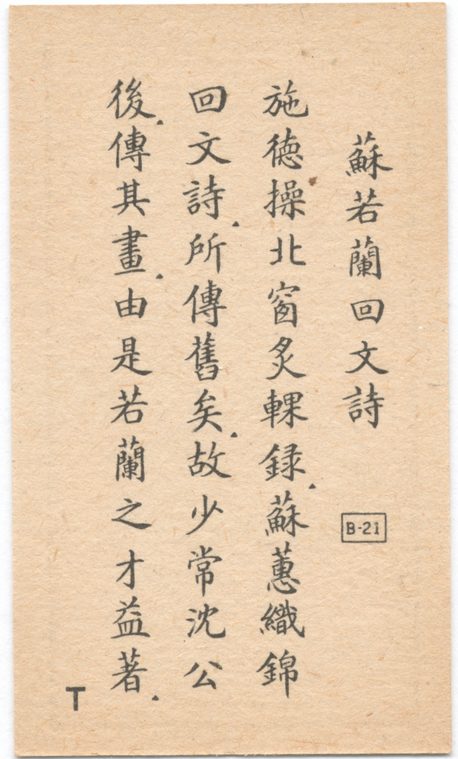 蘇若蘭回文詩
B-21
施德操北窗炙輠録.蘇蕙織錦
回文詩.所傳舊矣.故少常沈公
後.傳其畫.由是若蘭之才益著.
T